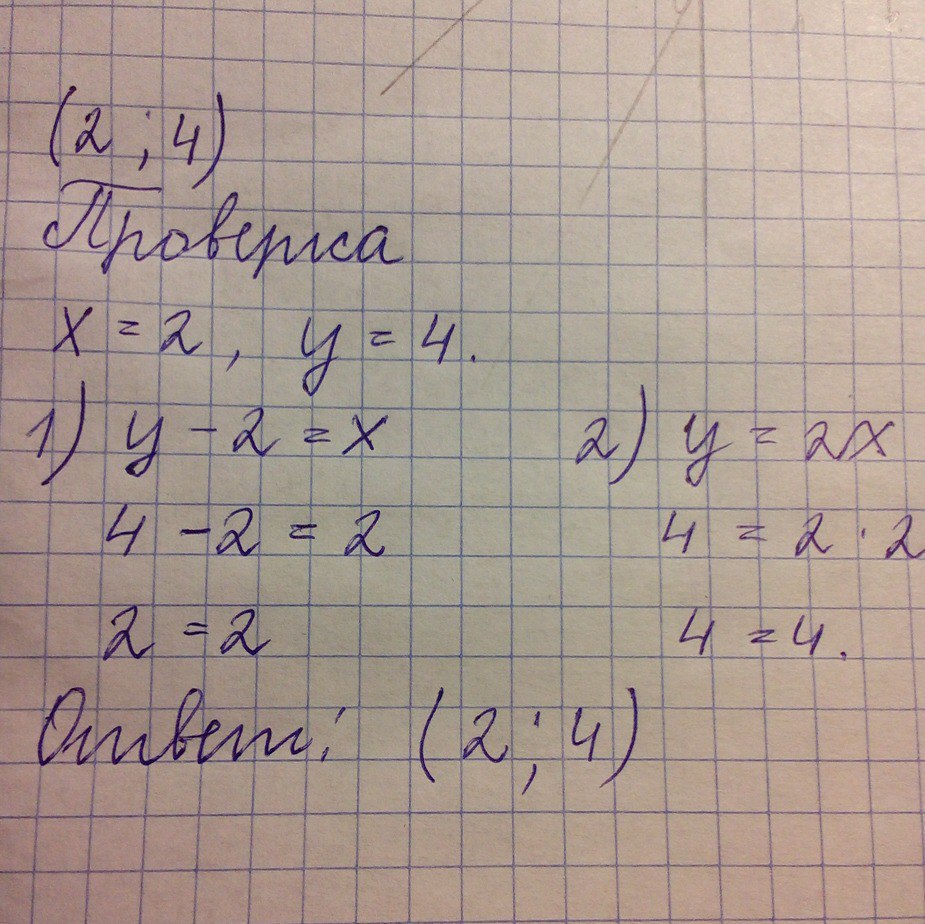 (2 ; 4)
Проверка
x = 2, y = 4.
1) y - 2 = x 2) y = 2x
4 - 2 = 2 4 = 2 · 2
2 = 2 4 = 4.
Ответ: (2 ; 4)